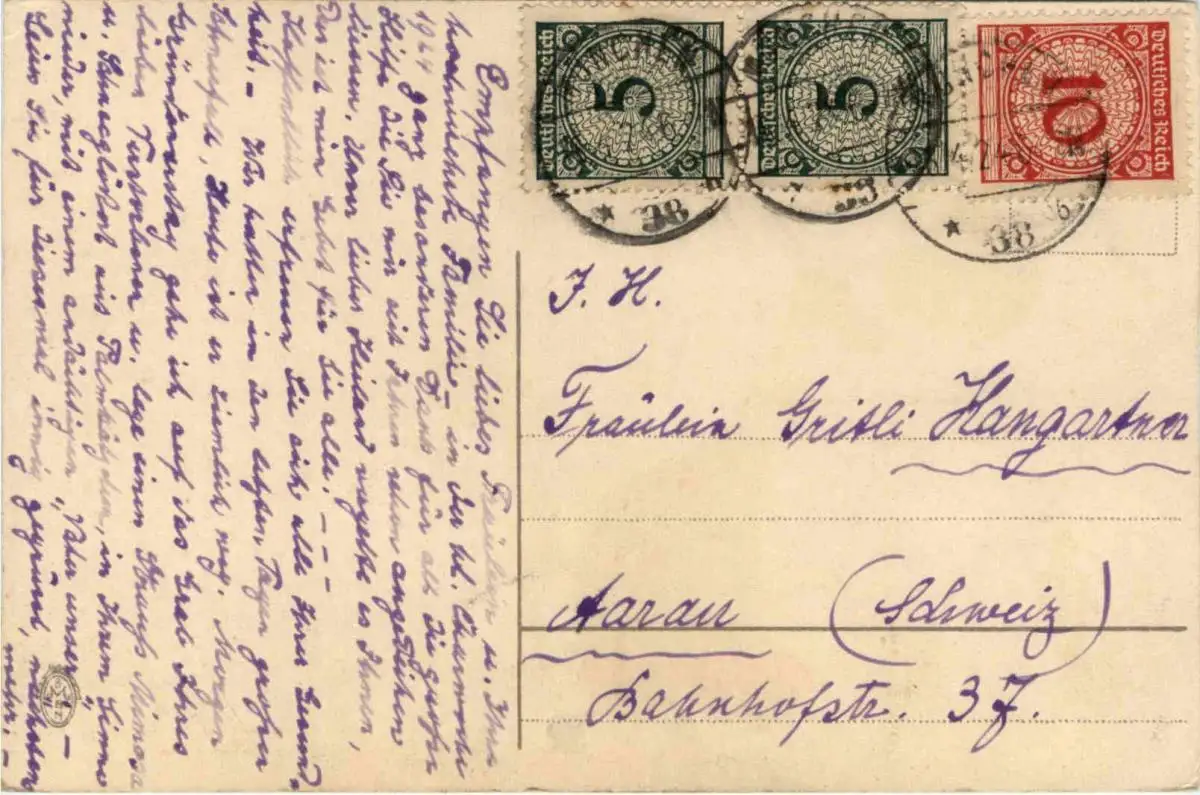 Deutsches Reich
5
Deutsches Reich
5
Deutsches Reich
10
MÜNCHEN
38
38
38
J. H.
Fräulein Gritli Hangartner
Aarau (Schweiz)
Bahnhofstr. 37.
Empfangen Sie liebes Fräulein u. Ihre
Familie – in der hl. Charwoche
1924 ganz besonderen Dank für all die große
Hilfe die Sie mir mit Ihren
lieber Heiland vergelte es Ihnen,
Das ist mein Gebet für Sie alle. – – –
Hoffentlich erfreuen Sie sich alle Ihrer Gesund-
heit – Wir hatten in den letzten Tagen großen
Schneefall, Heute ist er ziemlich weg. Morgen
Gründonnerstag gehe ich auf das Grab Ihres
lieben u. lege einen Strauß Mimosa
u. Schneeglöckl mit Palmkätzchen, in Ihrem Sinne
nieder, mit einem andächtigen „Vater unser" –
Seien Sie für diesmal innig gegrüßt, nächstens
mehr. –